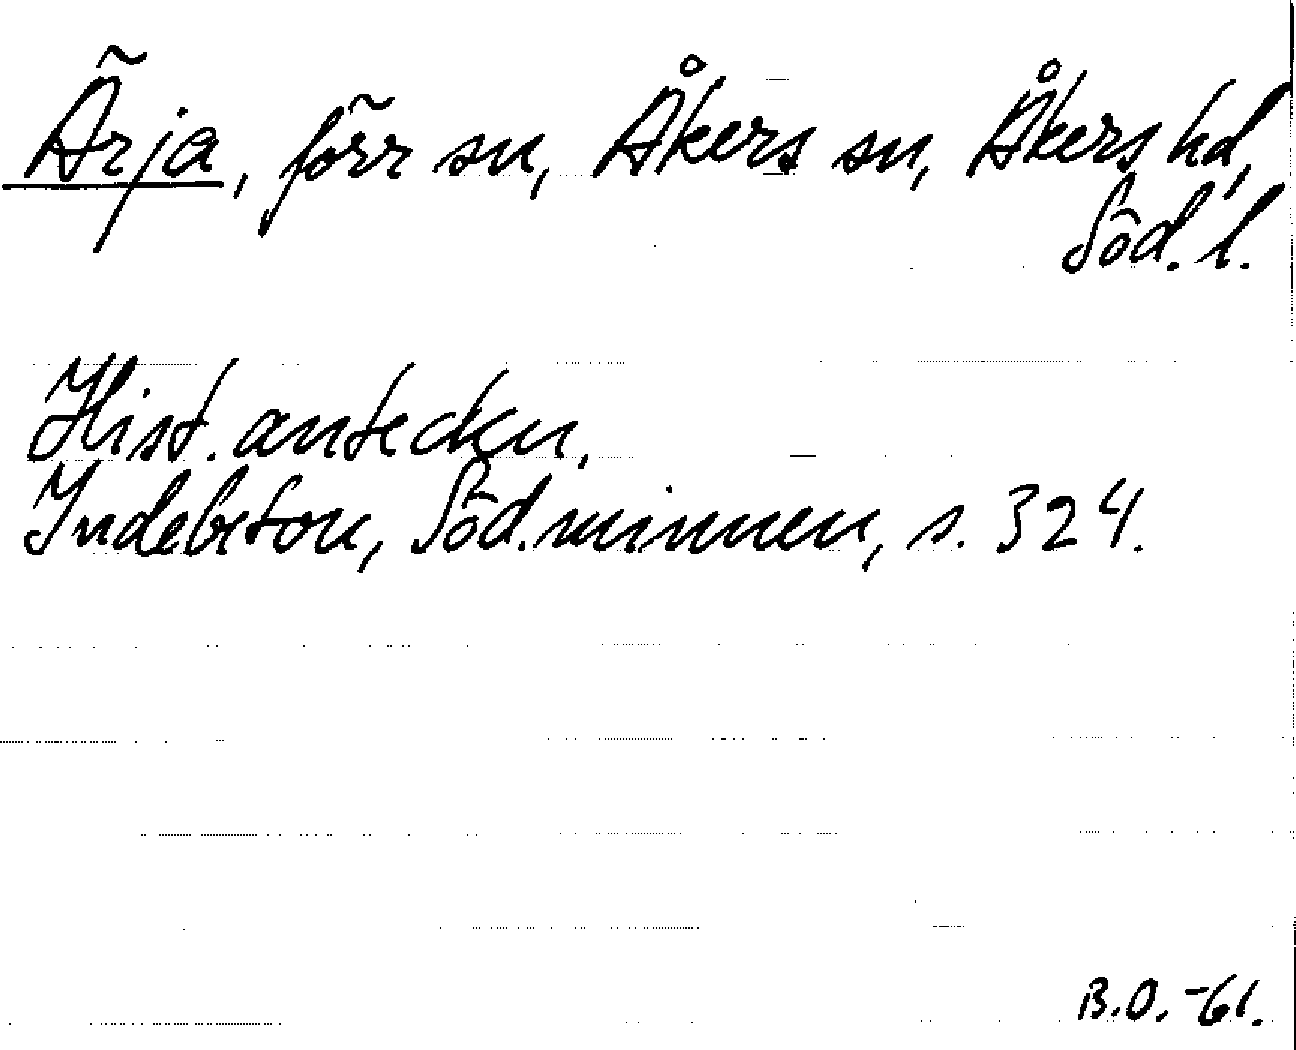 Ärja, förr sn, Åkers sn, Åkers hd,
Söd. l.
Hist. anteckn.
Indebetou, Söd. minnen, s. 324.
B.O. -61.